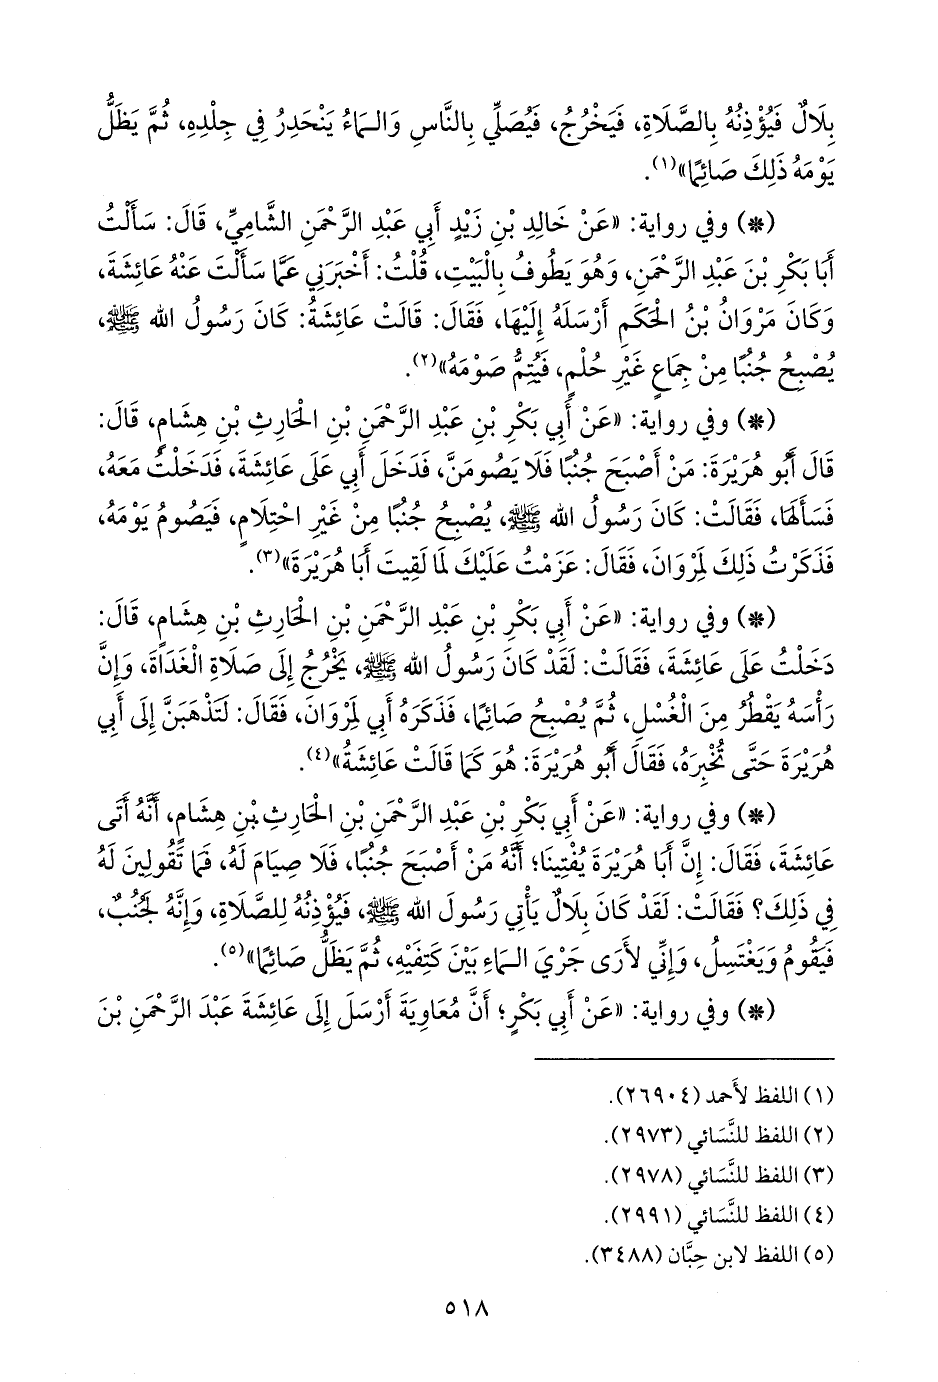 بِلَالٌ فَيُؤْذِنُهُ بِالصَّلَاةِ، فَيَخْرُجُ، فَيُصَلِّي بِالنَّاسِ وَالـمَاءُ يَنْحَدِرُ فِي جِلْدِهِ، ثُمَّ يَظَلُّ
يَوْمَهُ ذَلِكَ صَائِمًا»(١).
(*) وفي رواية: «عَنْ خَالِدِ بْنِ زَيْدٍ أَبِي عَبْدِ الرَّحْمَنِ الشَّامِيِّ، قَالَ: سَأَلْتُ
أَبَا بَكْرِ بْنَ عَبْدِ الرَّحْمَنِ، وَهُوَ يَطُوفُ بِالْبَيْتِ، قُلْتُ: أَخْبَرَنِي عَمَّا سَأَلْتَ عَنْهُ عَائِشَةَ،
وَكَانَ مَرْوَانُ بْنُ الْحَكَمِ أَرْسَلَهُ إِلَيْهَا، فَقَالَ: قَالَتْ عَائِشَةُ: كَانَ رَسُولُ الله ﷺ،
يُصْبِحُ جُنُبًا مِنْ جِمَاعٍ غَيْرِ حُلْمٍ، فَيُتِمُّ صَوْمَهُ»(٢).
(*) وفي رواية: «عَنْ أَبِي بَكْرِ بْنِ عَبْدِ الرَّحْمَنِ بْنِ الْحَارِثِ بْنِ هِشَامٍ، قَالَ:
قَالَ أَبُو هُرَيْرَةَ: مَنْ أَصْبَحَ جُنُبًا فَلَا يَصُومَنَّ، فَدَخَلَ أَبِي عَلَى عَائِشَةَ، فَدَخَلْتُ مَعَهُ،
فَسَأَلَهَا، فَقَالَتْ: كَانَ رَسُولُ الله ﷺ، يُصْبِحُ جُنُبًا مِنْ غَيْرِ احْتِلَامٍ، فَيَصُومُ يَوْمَهُ،
فَذَكَرْتُ ذَلِكَ لِمَرْوَانَ، فَقَالَ: عَزَمْتُ عَلَيْكَ لَمَا لَقِيتَ أَبَا هُرَيْرَةَ»(٣).
(*) وفي رواية: «عَنْ أَبِي بَكْرِ بْنِ عَبْدِ الرَّحْمَنِ بْنِ الْحَارِثِ بْنِ هِشَامٍ، قَالَ:
دَخَلْتُ عَلَى عَائِشَةَ، فَقَالَتْ: لَقَدْ كَانَ رَسُولُ الله ﷺ، يَخْرُجُ إِلَى صَلَاةِ الْغَدَاةِ، وَإِنَّ
رَأْسَهُ يَقْطُرُ مِنَ الْغُسْلِ، ثُمَّ يُصْبِحُ صَائِمًا، فَذَكَرَهُ أَبِي لِمَرْوَانَ، فَقَالَ: لَتَذْهَبَنَّ إِلَى أَبِي
هُرَيْرَةَ حَتَّى تُخْبِرَهُ، فَقَالَ أَبُو هُرَيْرَةَ: هُوَ كَمَا قَالَتْ عَائِشَةُ»(٤).
(*) وفي رواية: «عَنْ أَبِي بَكْرِ بْنِ عَبْدِ الرَّحْمَنِ بْنِ الْحَارِثِ بْنِ هِشَامٍ، أَنَّهُ أَتَى
عَائِشَةَ، فَقَالَ: إِنَّ أَبَا هُرَيْرَةَ يُفْتِينَا؛ أَنَّهُ مَنْ أَصْبَحَ جُنُبًا، فَلَا صِيَامَ لَهُ، فَمَا تَقُولِينَ لَهُ
فِي ذَلِكَ؟ فَقَالَتْ: لَقَدْ كَانَ بِلَالٌ يَأْتِي رَسُولَ الله ﷺ، فَيُؤْذِنُهُ لِلصَّلَاةِ، وَإِنَّهُ لَجُنُبٌ،
فَيَقُومُ وَيَغْتَسِلُ، وَإِنِّي لأَرَى جَرْيَ الـمَاءِ بَيْنَ كَتِفَيْهِ، ثُمَّ يَظَلُّ صَائِمًا»(٥).
(*) وفي رواية: «عَنْ أَبِي بَكْرٍ؛ أَنَّ مُعَاوِيَةَ أَرْسَلَ إِلَى عَائِشَةَ عَبْدَ الرَّحْمَنِ بْنَ
(١) اللفظ لأَحمد (٢٦٩٠٤).
(٢) اللفظ للنَّسَائي (٢٩٧٣).
(٣) اللفظ للنَّسَائي (٢٩٧٨).
(٤) اللفظ للنَّسَائي (٢٩٩١).
(٥) اللفظ لابن حِبَّان (٣٤٨٨).
٥١٨